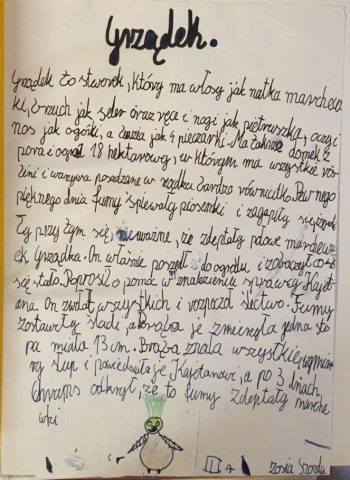 Grządek.
Grządek to stworek, który ma włosy jak natka marchew
ki, brzuch jak seler oraz ręce i nogi jak pietruszka, oczy i
nos jak ogórki, a buzia jak pieczarki. Ma także domek z
pora i ogród 18 hektarowy, w którym ma wszystkie roś
liny i warzywa posadzone w rządku bardzo równiutko. Pewnego
pięknego dnia fumy śpiewały piosenki i zagapiły się
ły przy tym się, nieważne, że zdeptały pole marchew
ek Grządka. On właśnie poszedł do ogrodu i zobaczył co
się stało. Poprosił o pomoc w znalezieniu sprawcy Kajet
ana. On zwołał wszystkich i rozpoczął śledztwo. Fumy
zostawiły ślady, a Brąba je zmierzyła jedna sto
pa miała 13 cm. Brąba znała wszystkie wymia
ry stup i powiedziała je Kajetanowi, a po 3 dniach
Chrums odkrył, że to fumy zdeptały marche
wki
II A
Zosia